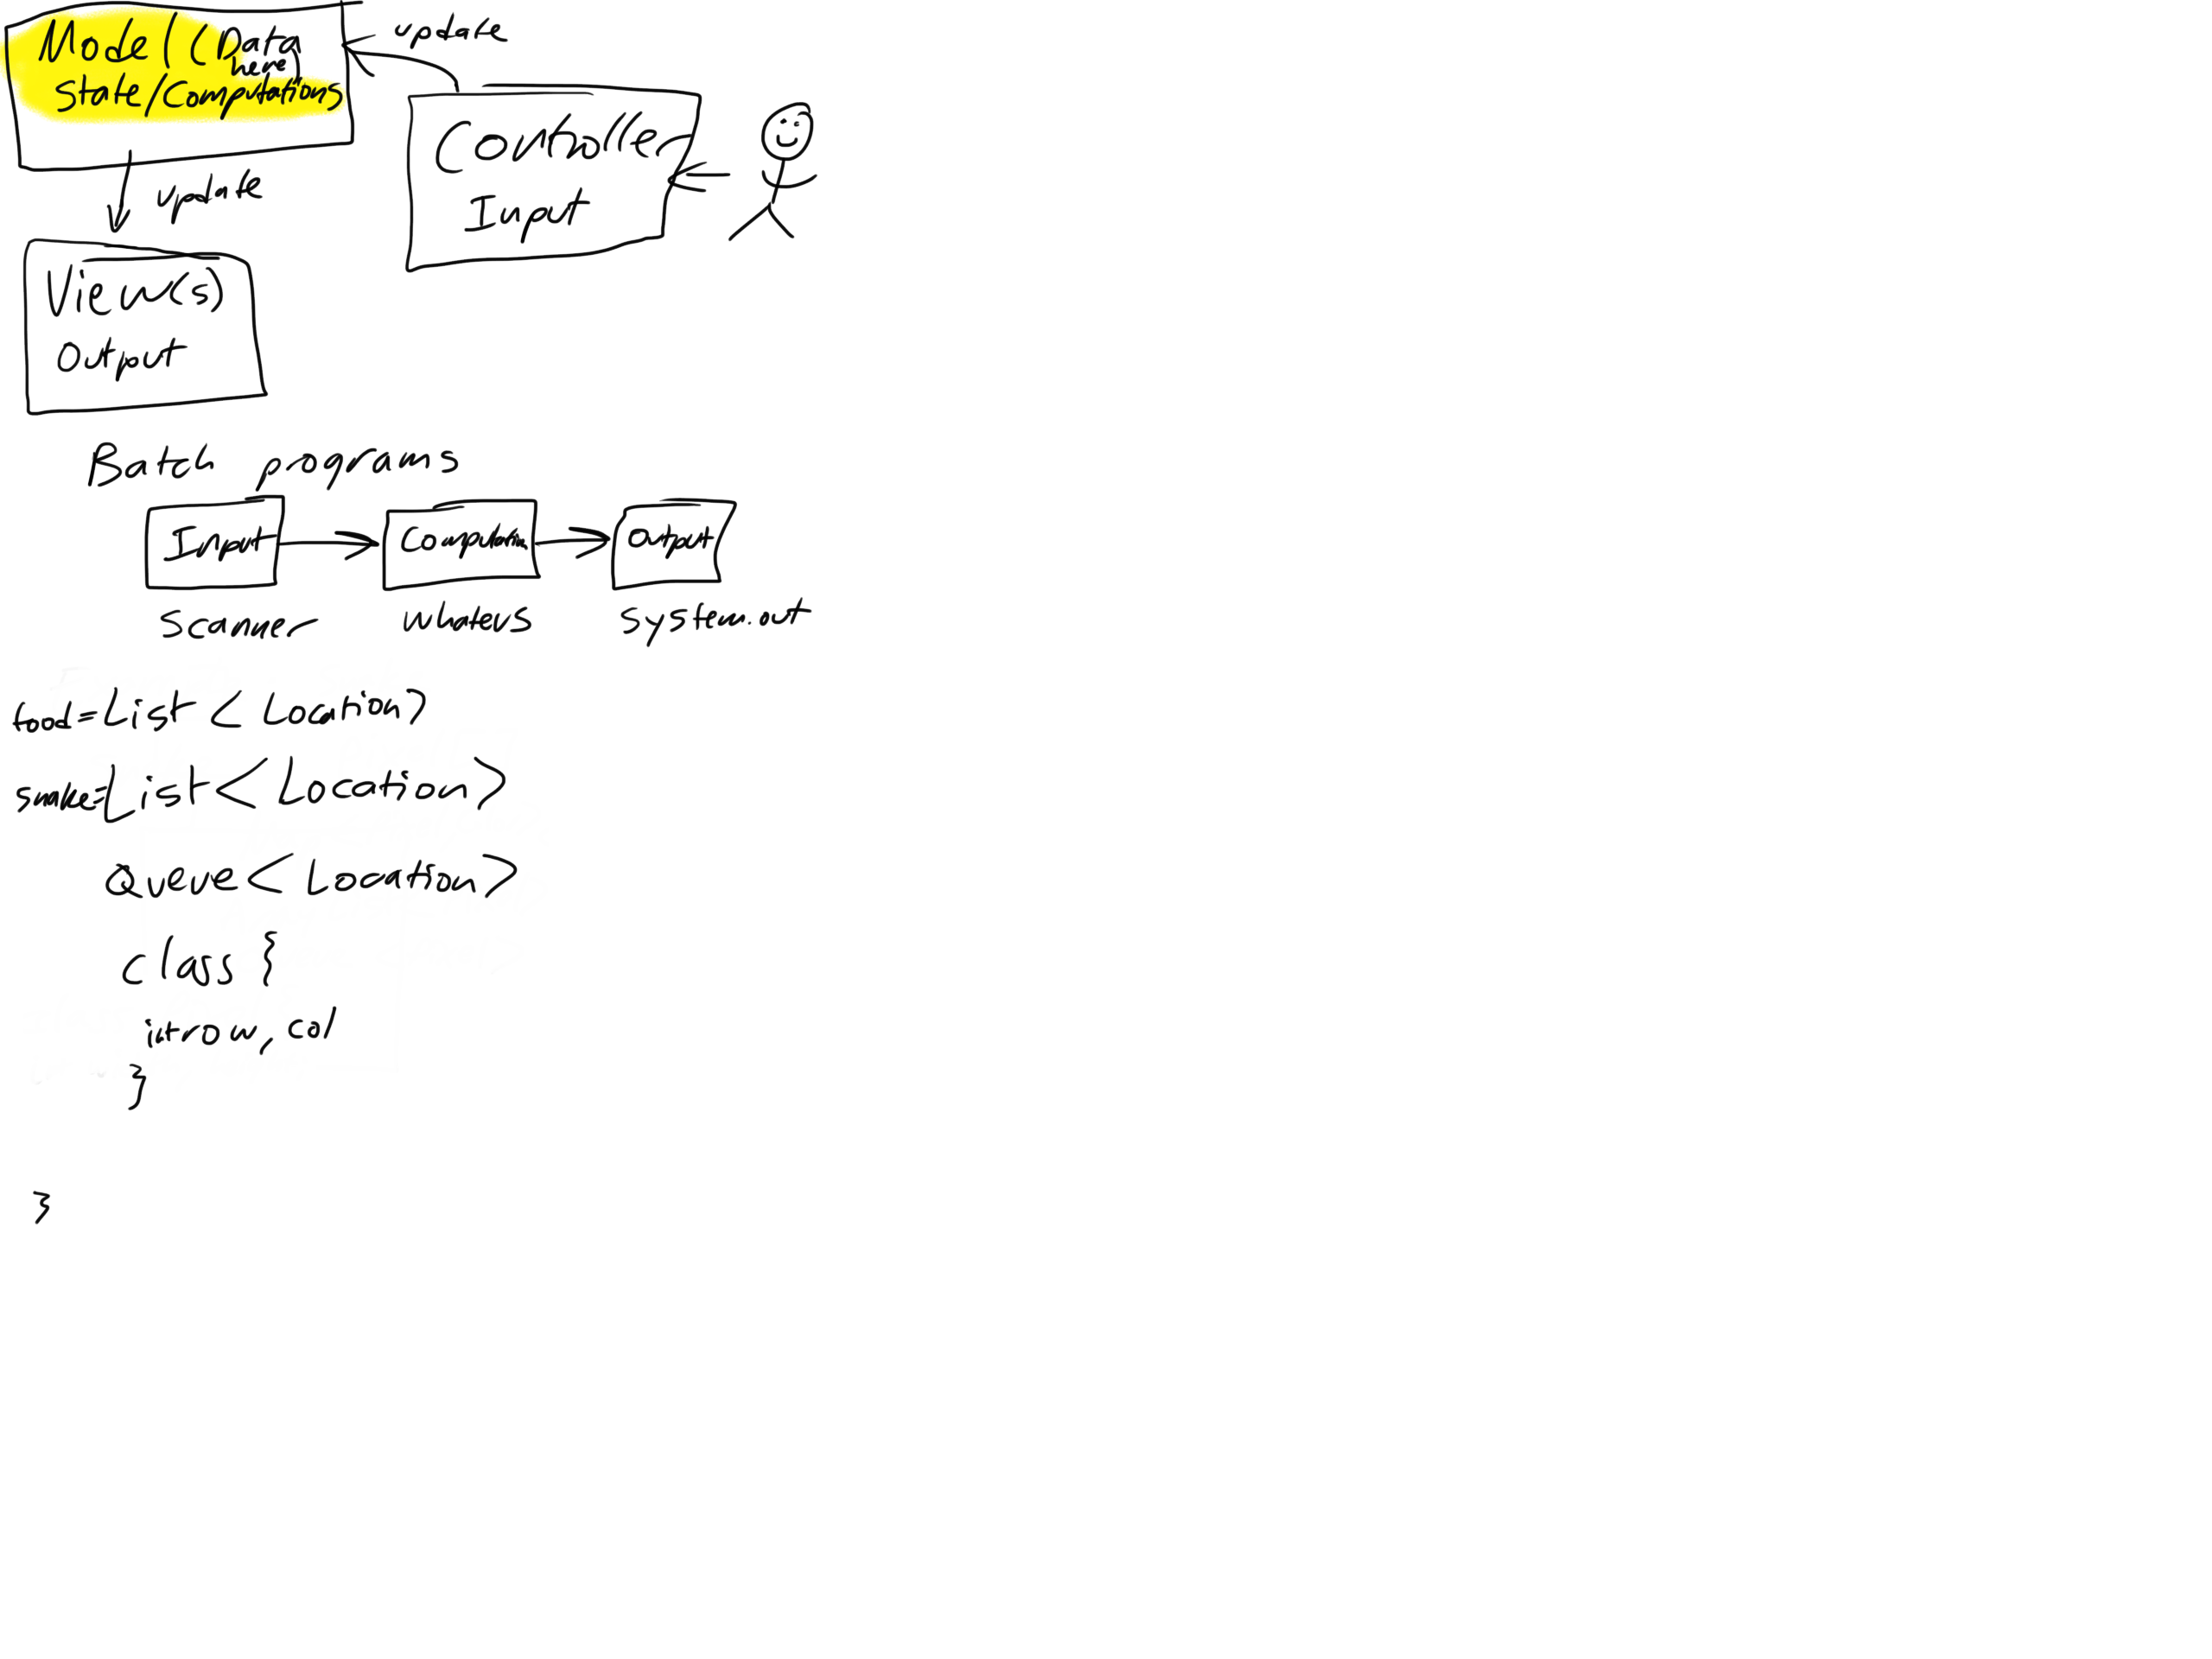 Model (Data
here)
State/Computations
update
Controller
Input
update
View(s)
Output
Batch programs
Input
Computation
Output
Scanner
Whatevs
System.out
food=List<Location>
snake=List<Location>
Queue<Location>
class {
int row, col
}
}